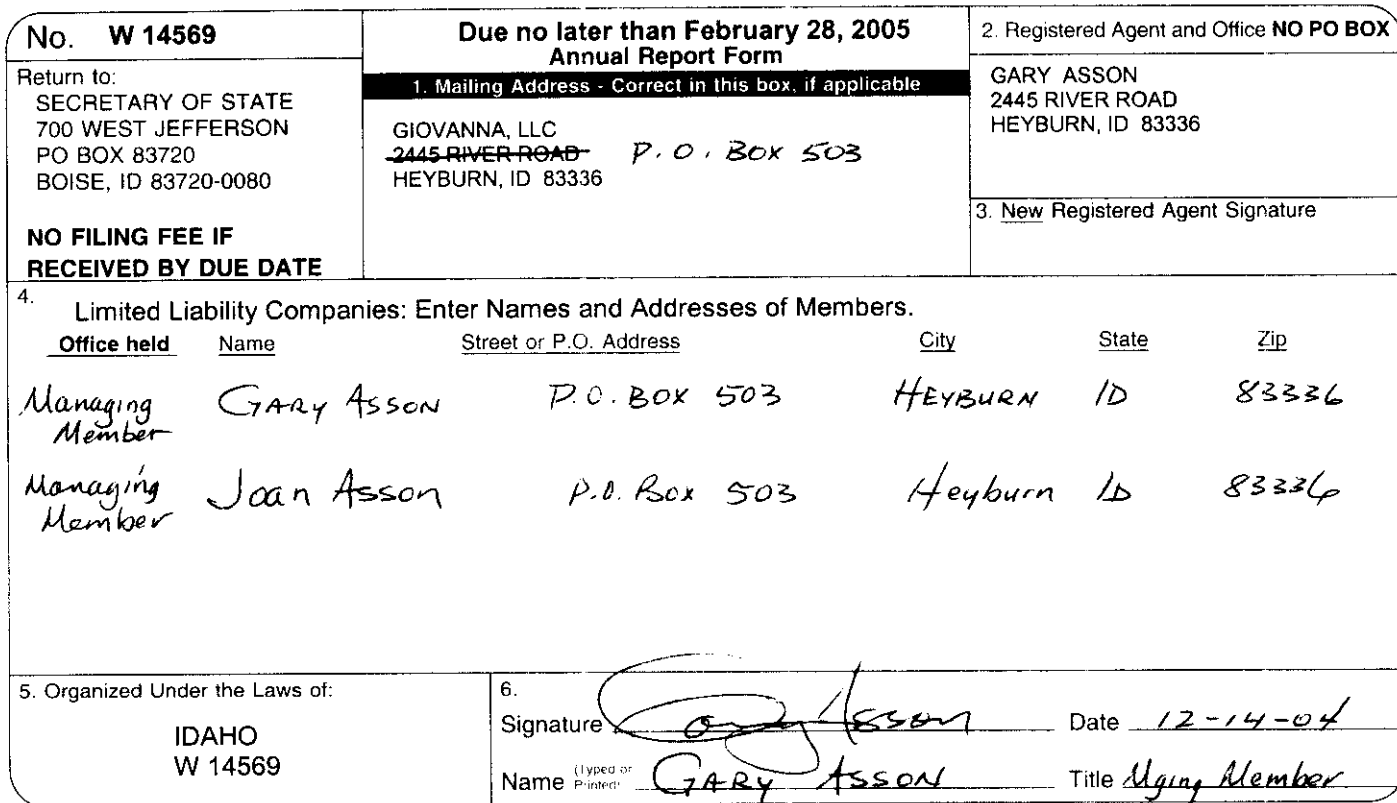 No. W 14569
Return to:
SECRETARY OF STATE
700 WEST JEFFERSON
PO BOX 83720
BOISE, ID 83720-0080
NO FILING FEE IF
RECEIVED BY DUE DATE
Due no later than February 28, 2005
Annual Report Form
1. Mailing Address - Correct in this box, if applicable
GIOVANNA, LLC
2445 RIVER ROAD P.O. BOX 503
HEYBURN, ID 83336
2. Registered Agent and Office NO PO BOX
GARY ASSON
2445 RIVER ROAD
HEYBURN, ID 83336
3. New Registered Agent Signature
4. Limited Liability Companies: Enter Names and Addresses of Members.
Office held Name Street or P.O. Address City State Zip
Managing GARY ASSON P.O. BOX 503 HEYBURN ID 83336
Member
Managing Joan Asson P.O. Box 503 Heyburn ID 83336
Member
5. Organized Under the Laws of:
IDAHO
W 14569
6.
Signature Gary Asson Date 12-14-04
Name (Typed or Printed) GARY ASSON Title Mging Member